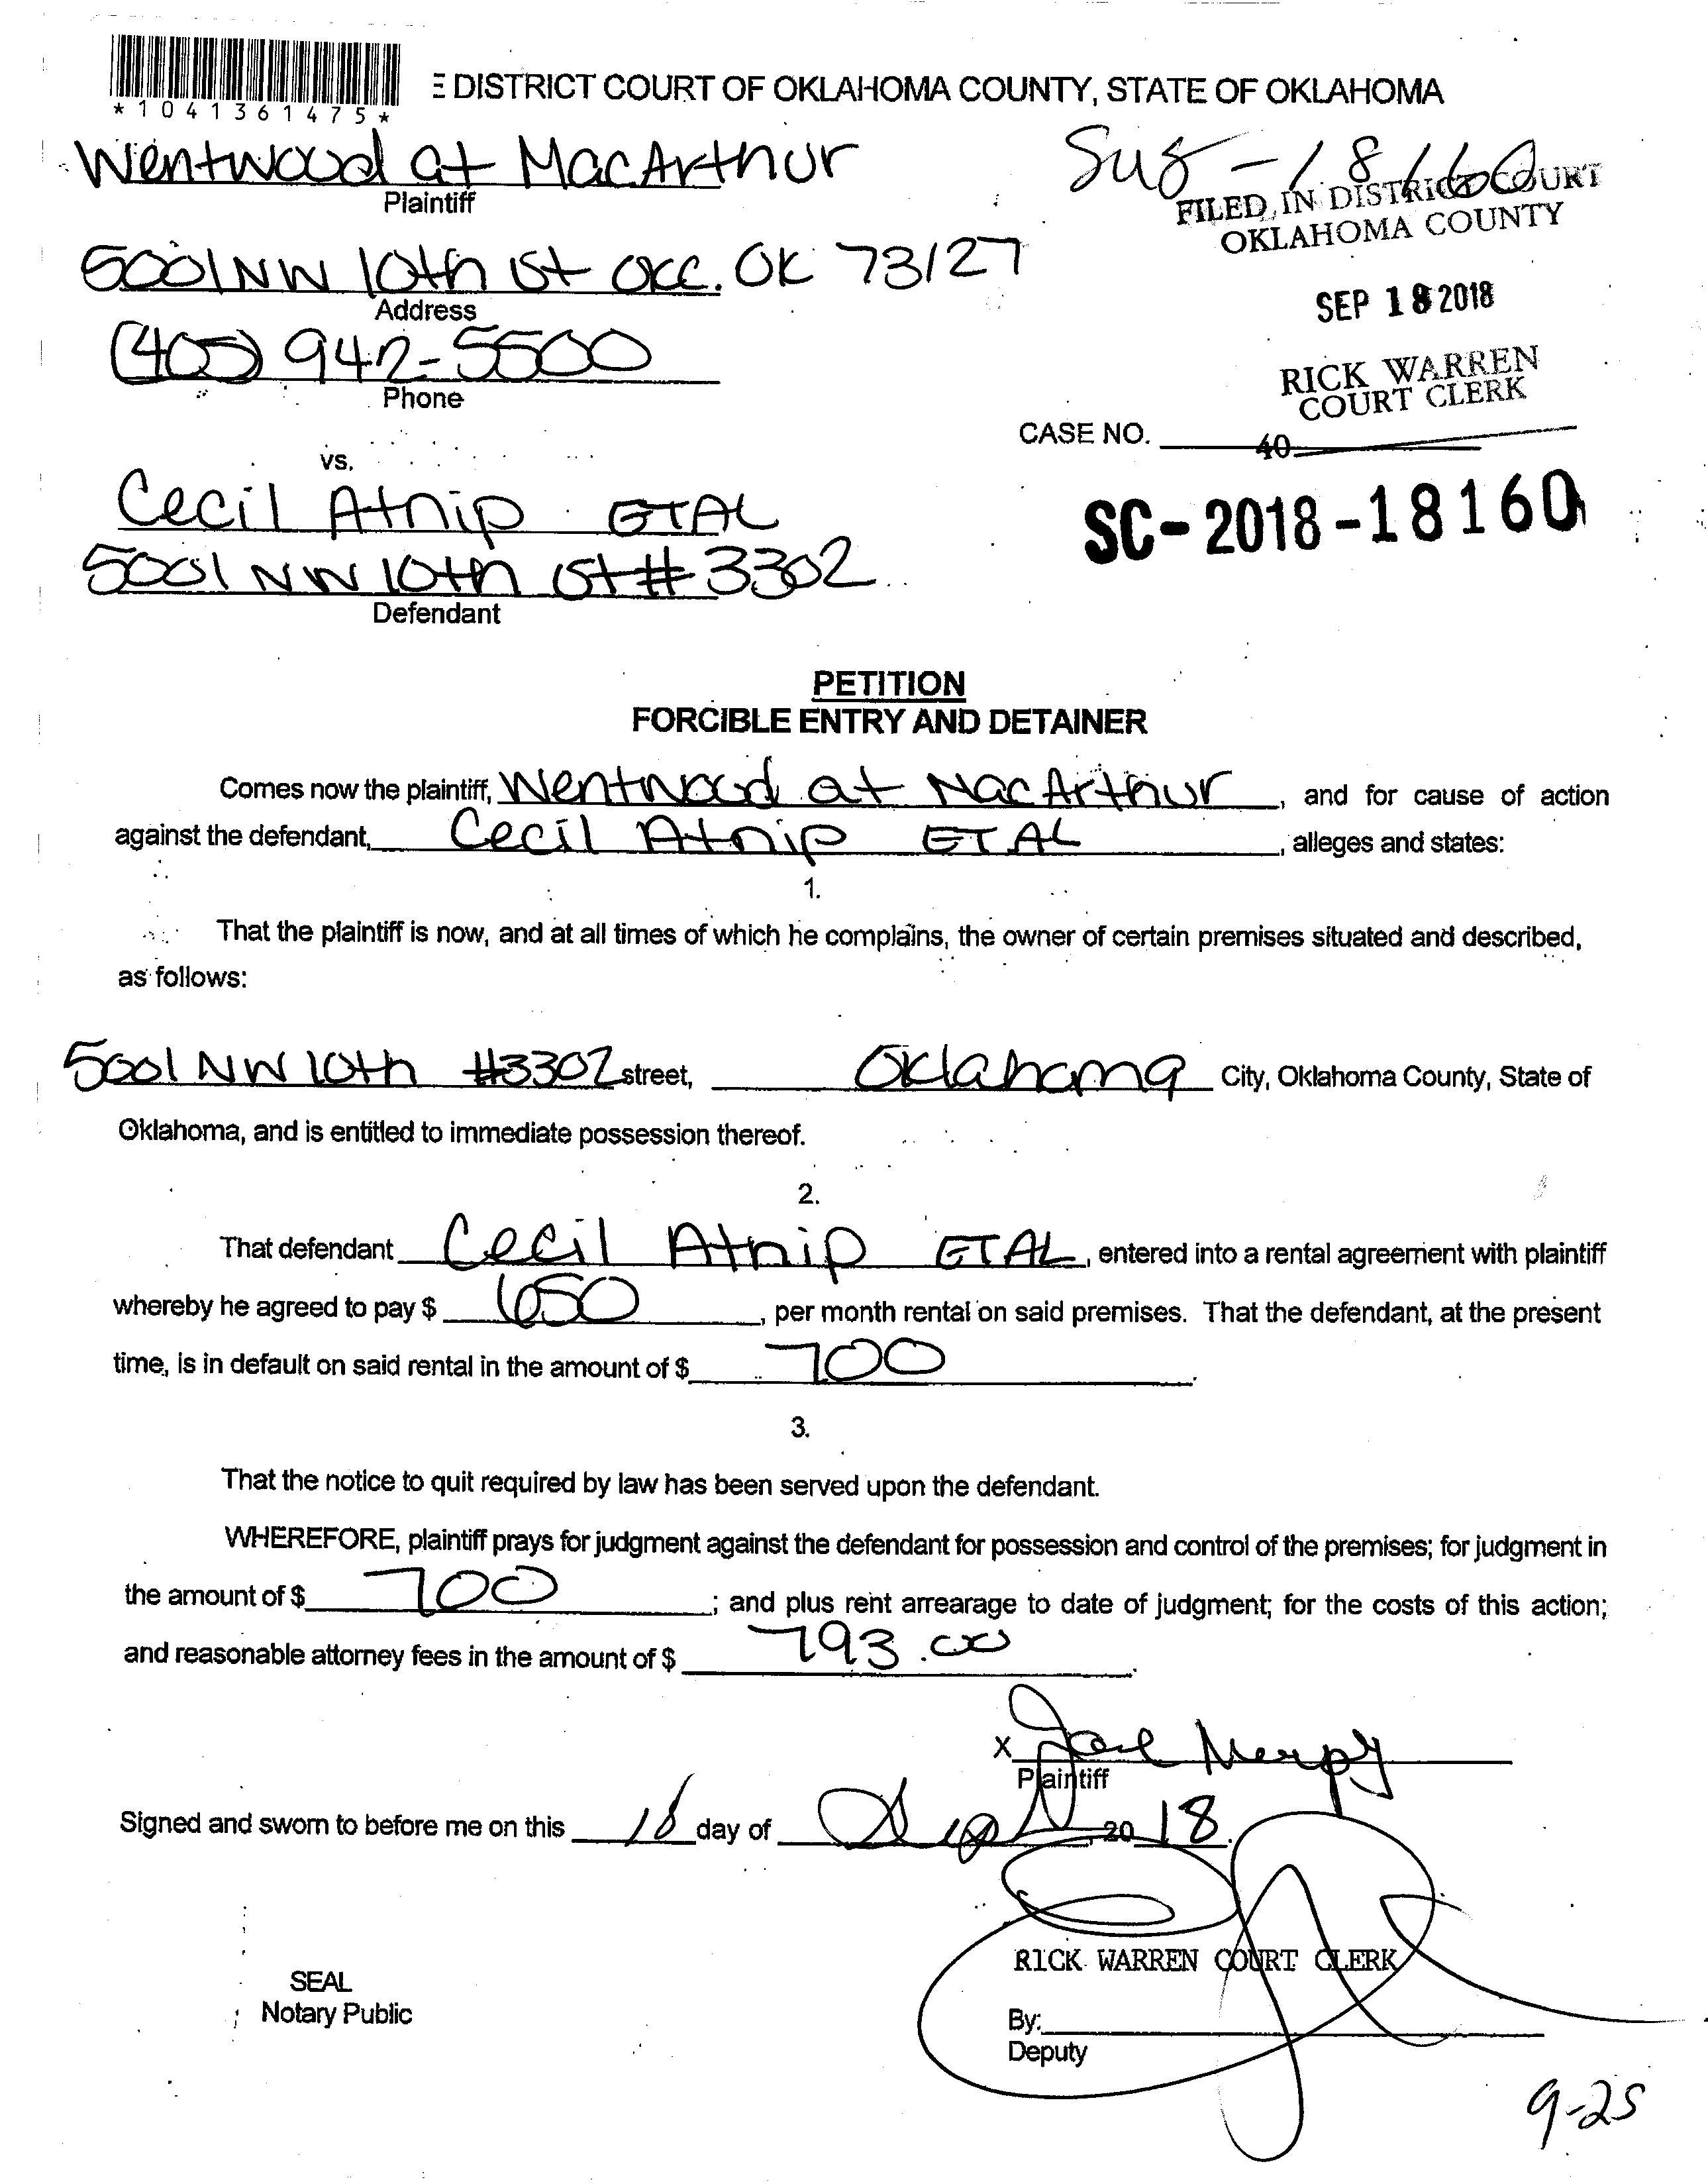 *1041361475*
E DISTRICT COURT OF OKLAHOMA COUNTY, STATE OF OKLAHOMA
Wentwood at MacArthur
Plaintiff
18160
FILED IN DISTRICT COURT
OKLAHOMA COUNTY
5001 NW 10th St OKC. OK 73127
Address
SEP 18 2018
(405) 942-5500
Phone
RICK WARREN
COURT CLERK
CASE NO.
40
vs.
Cecil Atnip ETAL
SC-2018-18160
5001 NW 10th St # 3302
Defendant
PETITION
FORCIBLE ENTRY AND DETAINER
Comes now the plaintiff, Wentwood at MacArthur, and for cause of action
against the defendant, Cecil Atnip ETAL, alleges and states:
1.
That the plaintiff is now, and at all times of which he complains, the owner of certain premises situated and described,
as follows:
5001 NW 10th #3302 street, Oklahoma City, Oklahoma County, State of
Oklahoma, and is entitled to immediate possession thereof.
2.
That defendant Cecil Atnip ETAL, entered into a rental agreement with plaintiff
whereby he agreed to pay $ 650, per month rental on said premises. That the defendant, at the present
time, is in default on said rental in the amount of $ 700.
3.
That the notice to quit required by law has been served upon the defendant.
WHEREFORE, plaintiff prays for judgment against the defendant for possession and control of the premises; for judgment in
the amount of $ 700; and plus rent arrearage to date of judgment; for the costs of this action;
and reasonable attorney fees in the amount of $ 793.00.
X
Plaintiff
Signed and sworn to before me on this 18 day of Sept, 2018.
RICK WARREN COURT CLERK
SEAL
Notary Public
By:
Deputy
9-25